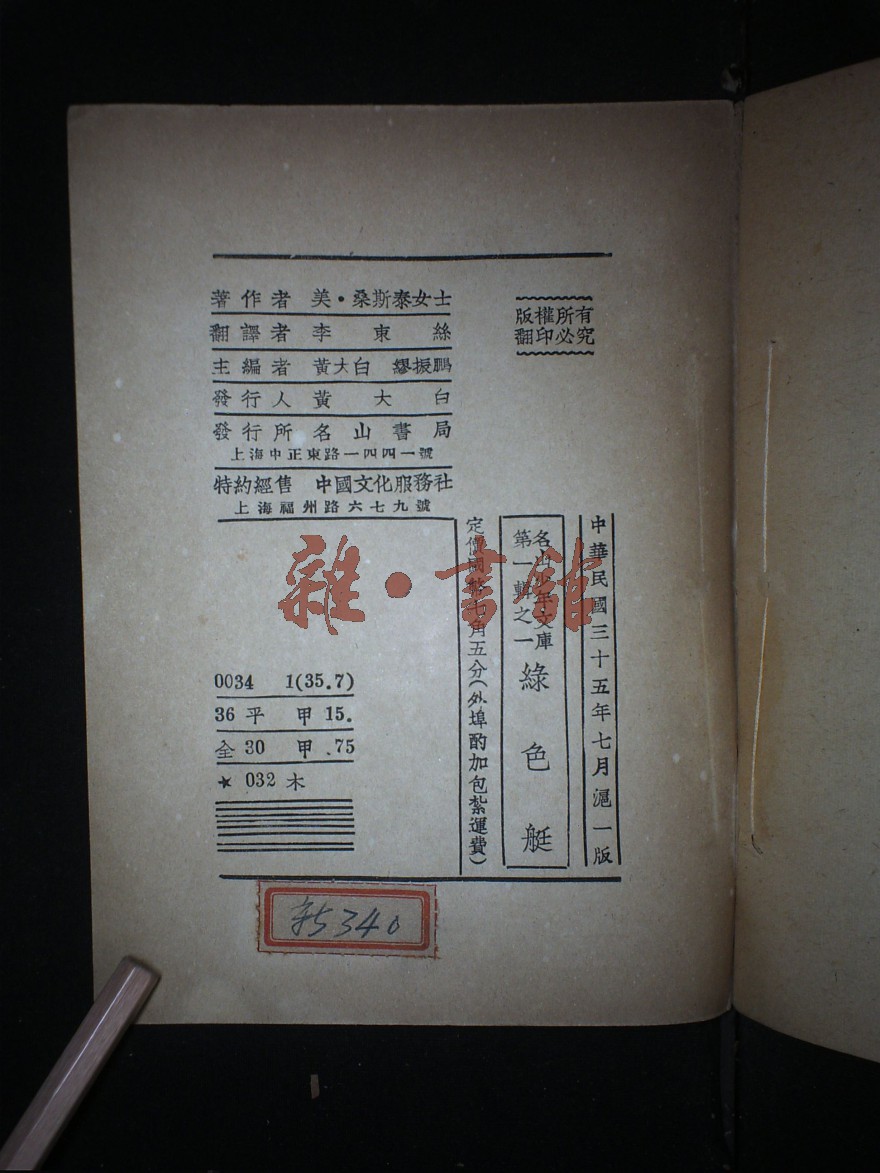 著作者 美·桑斯泰女士
翻譯者 李東絲
主編者 黃大白 繆振鵬
發行人 黃大白
發行所 名山書局
上海中正東路一四四一號
特約經售 中國文化服務社
上海福州路六七九號
版權所有
翻印必究
中華民國三十五年七月滬一版
名山少年文庫
第一輯之一
綠色艇
定價國幣七角五分(外埠酌加包紮運費)
0034 1(35.7)
36 平 甲 15.
全 30 甲 .75
★ 032 木
雜·書館
5340